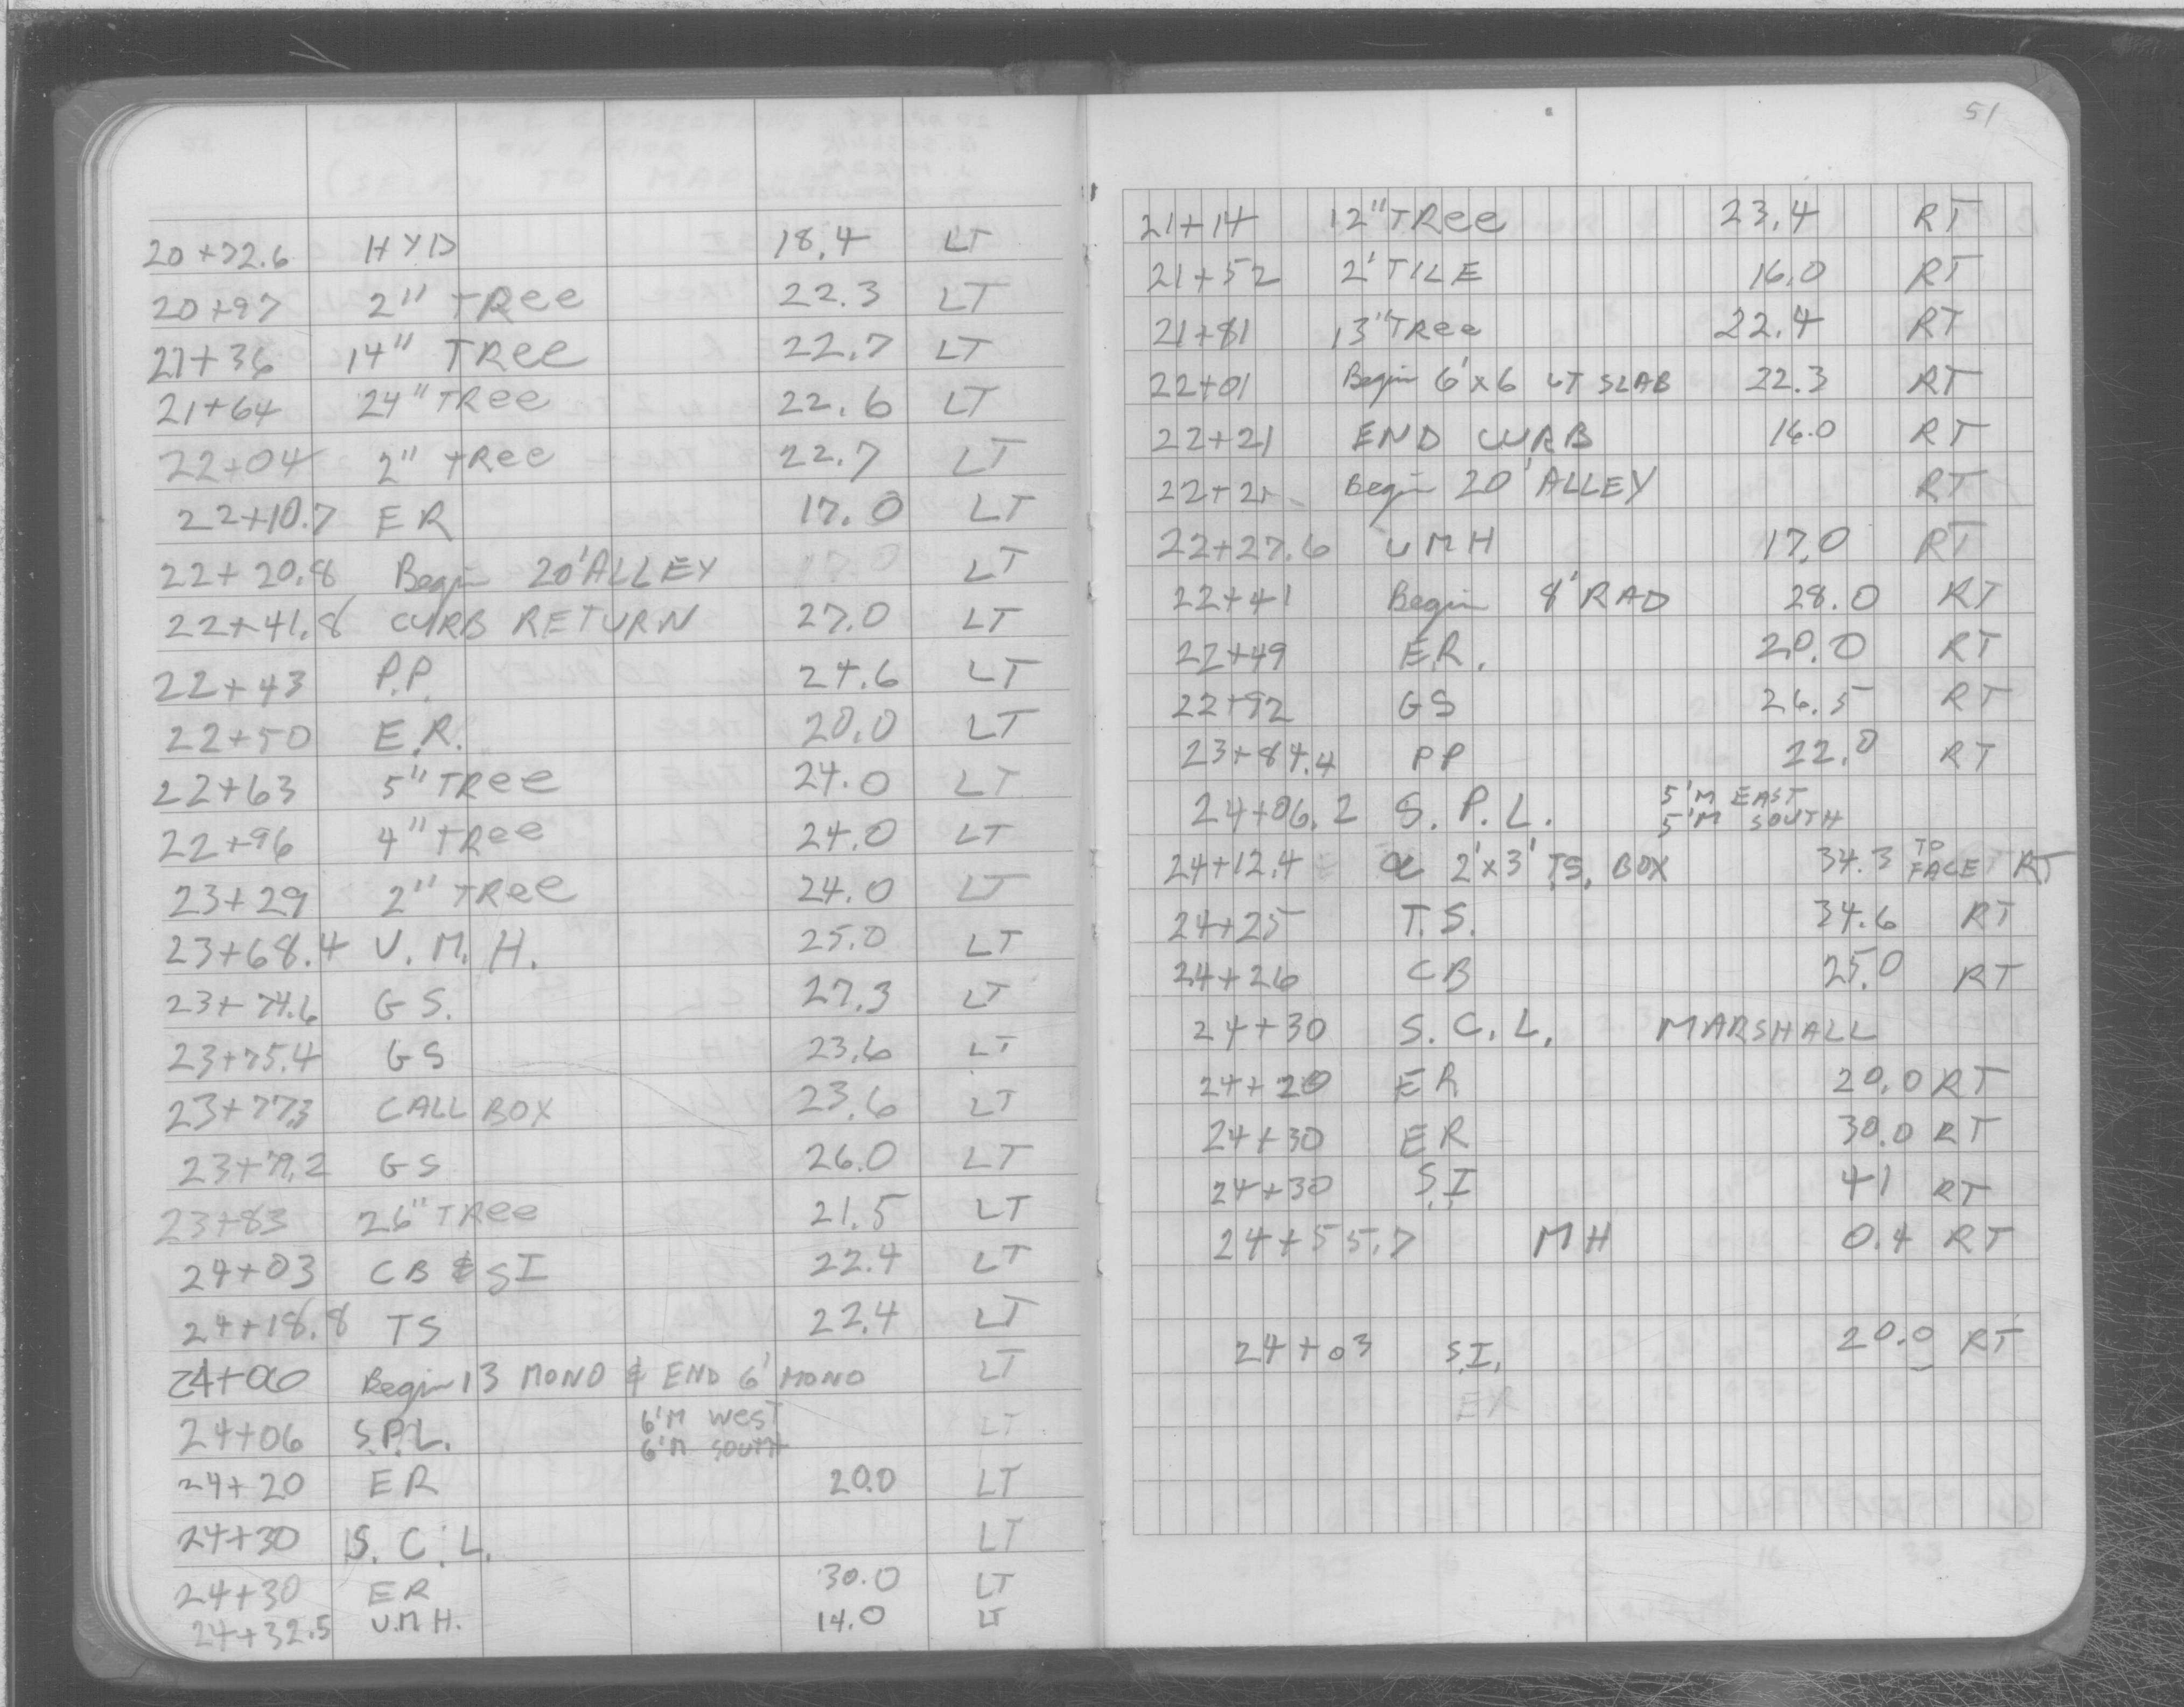 20+72.6 HYD 18.4 LT
20+97 2" TRee 22.3 LT
21+36 14" TRee 22.7 LT
21+64 24" TRee 22.6 LT
22+04 2" TRee 22.7 LT
22+10.7 ER 17.0 LT
22+20.8 Begin 20' ALLEY LT
22+41.8 CURB RETURN 27.0 LT
22+43 P.P. 24.6 LT
22+50 E.R. 20.0 LT
22+63 5" TRee 24.0 LT
22+96 4" TRee 24.0 LT
23+29 2" TRee 24.0 LT
23+68.4 U.M.H. 25.0 LT
23+74.6 GS. 27.3 LT
23+75.4 GS 23.6 LT
23+77.3 CALL BOX 23.6 LT
23+79.2 GS 26.0 LT
23+83 26" TRee 21.5 LT
24+03 CB & SI 22.4 LT
24+18.8 TS 22.4 LT
24+00 Begin 13 MONO & END 6' MONO LT
24+06 S.P.L. 6'M WesT LT
6'M SOUTH
24+20 ER 20.0 LT
24+30 S.C.L. LT
24+30 ER 30.0 LT
24+32.5 U.M.H. 14.0 LT
51
21+14 12" TRee 23.4 RT
21+52 2' TILE 16.0 RT
21+81 13" TRee 22.4 RT
22+01 Begin 6'x6 LT SLAB 22.3 RT
22+21 END CURB 16.0 RT
22+21 Begin 20' ALLEY RT
22+27.6 UMH 17.0 RT
22+41 Begin 8' RAD 28.0 RT
22+49 E.R. 20.0 RT
22+92 GS 26.5 RT
23+84.4 PP 22.0 RT
24+06.2 S.P.L. 5'M EAST
5'M SOUTH
24+12.4 2'x3' T.S. BOX 34.3 TO FACE RT
24+25 T.S. 34.6 RT
24+26 CB 25.0 RT
24+30 S.C.L. MARSHALL
24+20 ER 20.0 RT
24+30 ER 30.0 RT
24+30 S.I 41 RT
24+55.7 MH 0.4 RT
24+03 S.I. 20.0 RT
ER